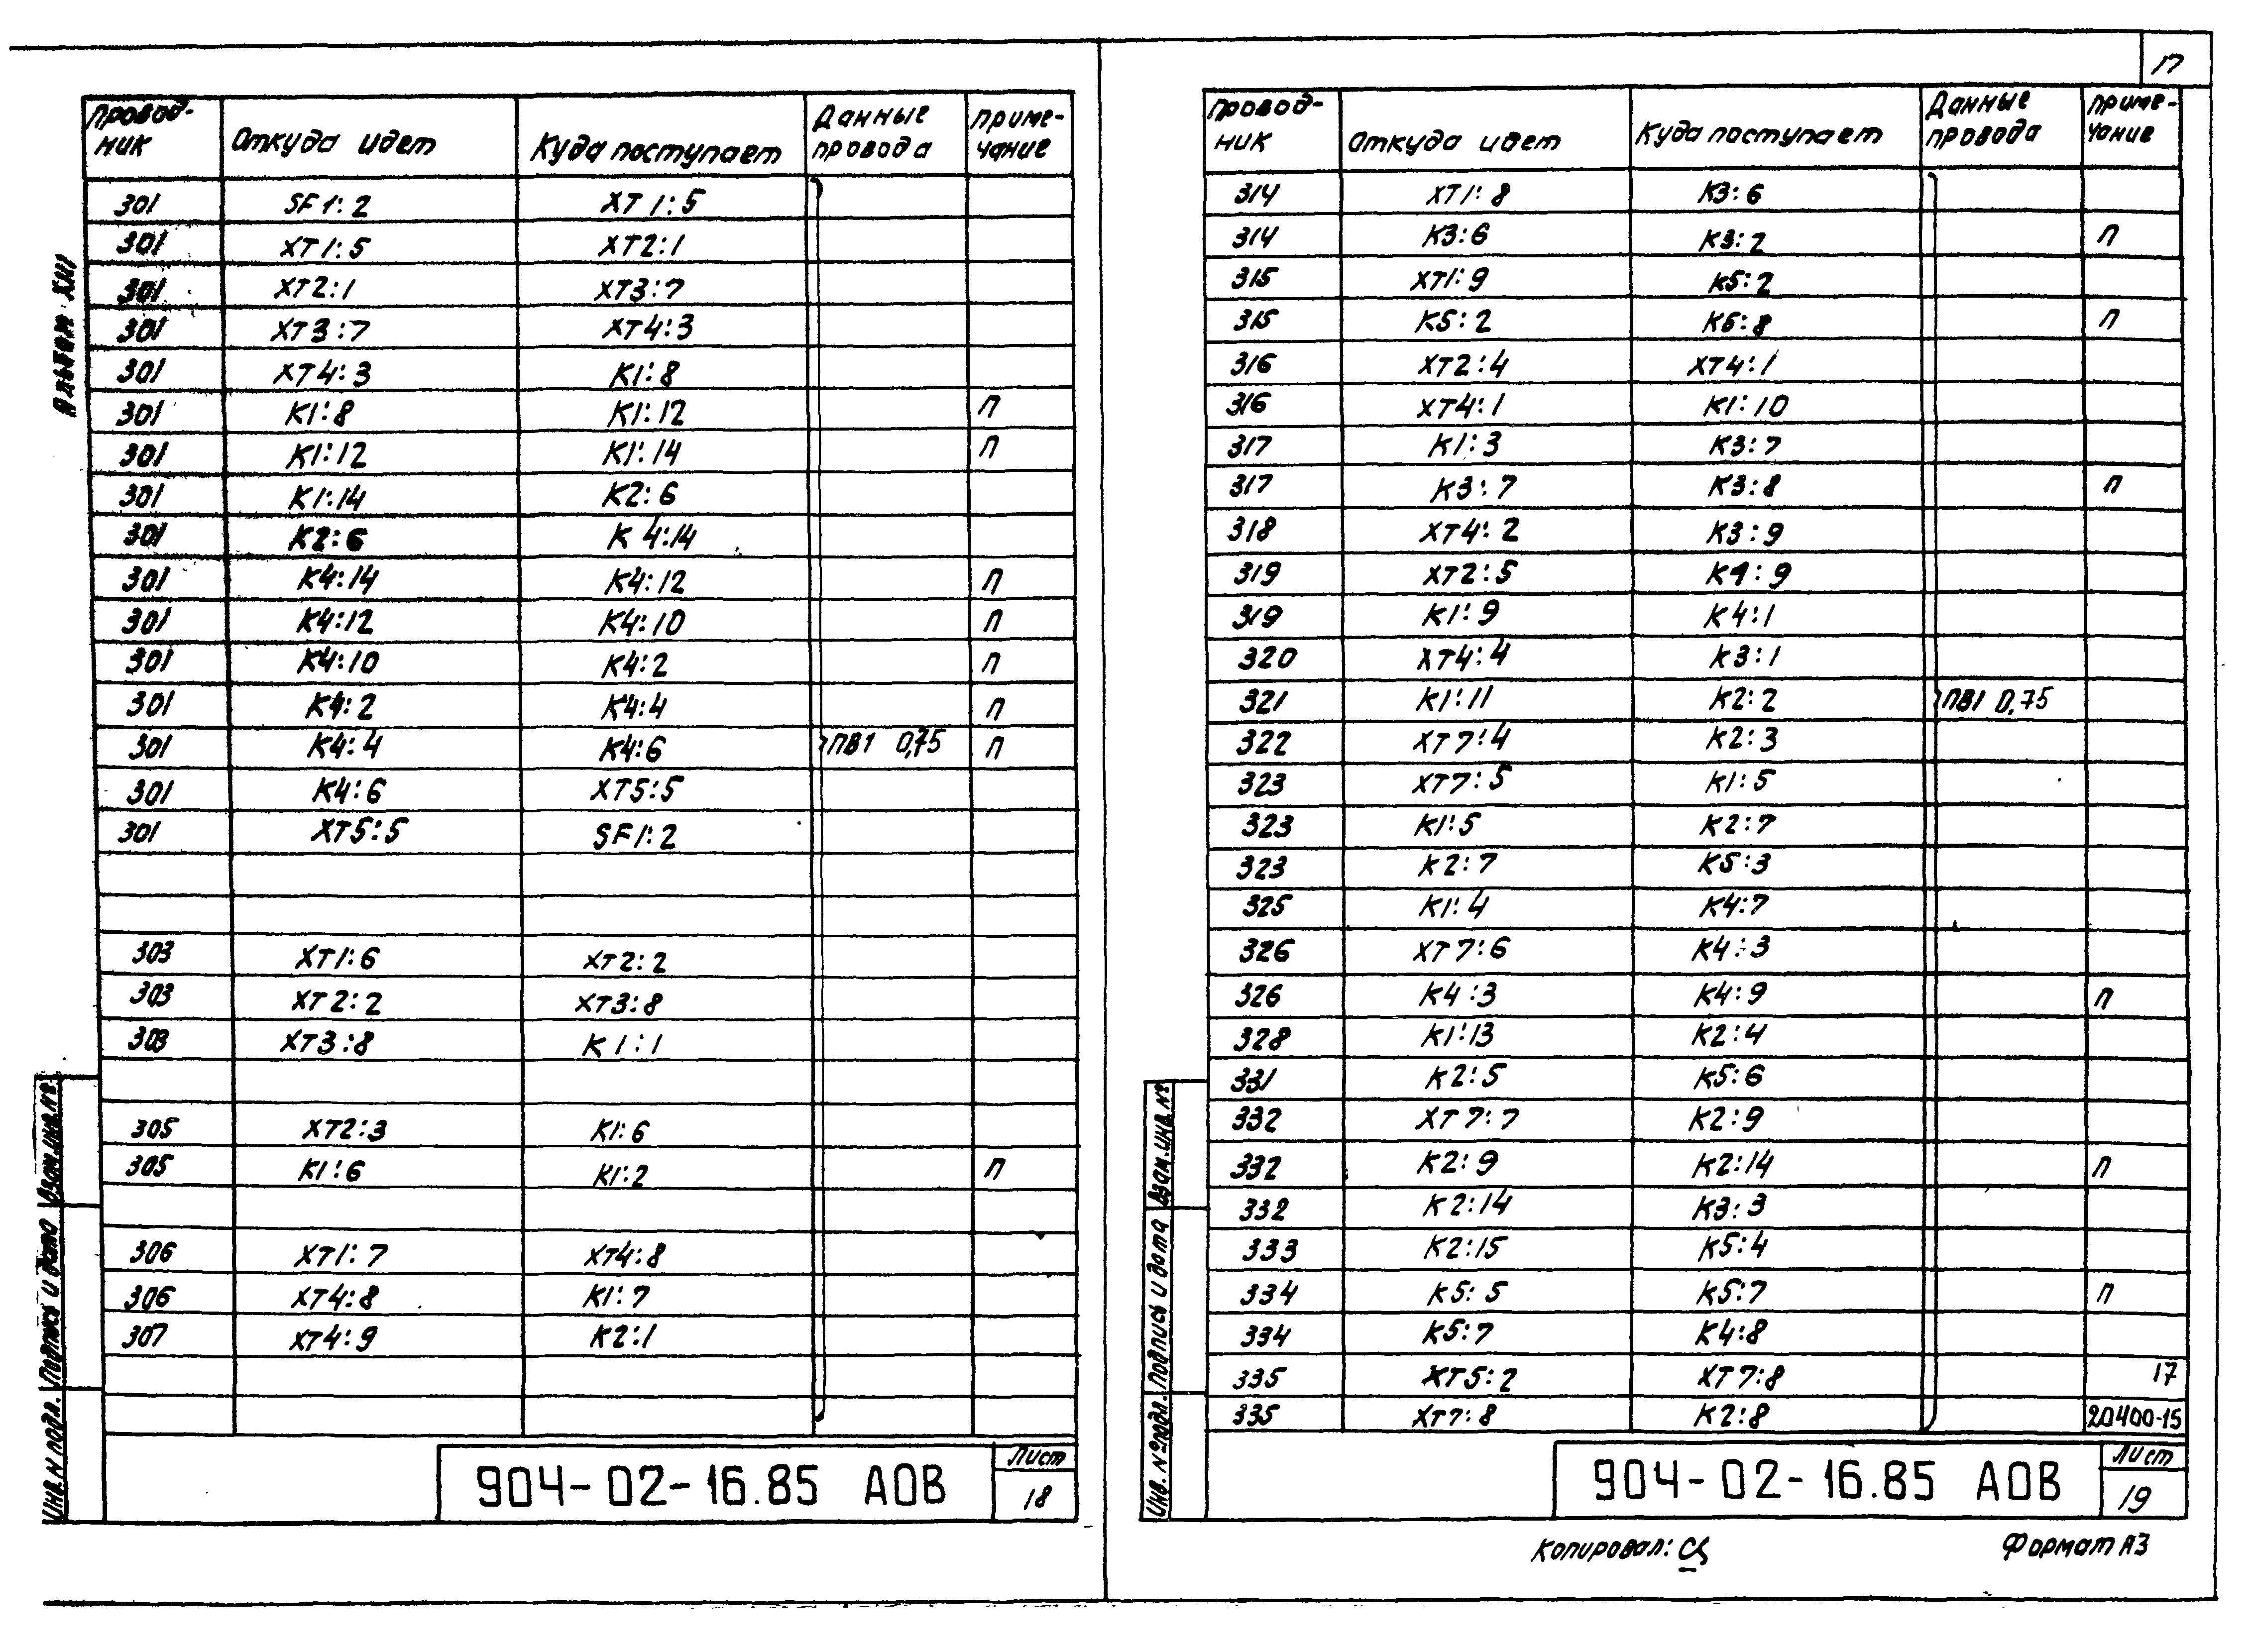 17
Альбом XIII
Провод-ник Откуда идет Куда поступает Данные провода Приме-чание
301 SF1:2 XT1:5
301 XT1:5 XT2:1
301 XT2:1 XT3:7
301 XT3:7 XT4:3
301 XT4:3 K1:8
301 K1:8 K1:12 П
301 K1:12 K1:14 П
301 K1:14 K2:6
301 K2:6 K4:14
301 K4:14 K4:12 П
301 K4:12 K4:10 П
301 K4:10 K4:2 П
301 K4:2 K4:4 П
301 K4:4 K4:6 ПВ1 0,75 П
301 K4:6 XT5:5
301 XT5:5 SF1:2
303 XT1:6 XT2:2
303 XT2:2 XT3:8
303 XT3:8 K1:1
305 XT2:3 K1:6
305 K1:6 K1:2 П
306 XT1:7 XT4:8
306 XT4:8 K1:7
307 XT4:9 K2:1
Инв.N подл. Подпись и дата Взам.инв.N°
904-02-16.85 АОВ
Лист
18
Провод-ник Откуда идет Куда поступает Данные провода Приме-чание
314 XT1:8 K3:6
314 K3:6 K3:2 П
315 XT1:9 K5:2
315 K5:2 K6:8 П
316 XT2:4 XT4:1
316 XT4:1 K1:10
317 K1:3 K3:7
317 K3:7 K3:8 П
318 XT4:2 K3:9
319 XT2:5 K1:9
319 K1:9 K4:1
320 XT4:4 K3:1
321 K1:11 K2:2 ПВ1 0,75
322 XT7:4 K2:3
323 XT7:5 K1:5
323 K1:5 K2:7
323 K2:7 K5:3
325 K1:4 K4:7
326 XT7:6 K4:3
326 K4:3 K4:9 П
328 K1:13 K2:4
331 K2:5 K5:6
332 XT7:7 K2:9
332 K2:9 K2:14 П
332 K2:14 K3:3
333 K2:15 K5:4
334 K5:5 K5:7 П
334 K5:7 K4:8
335 XT5:2 XT7:8 17
335 XT7:8 K2:8 20400-15
Инв. N°подл. Подпись и дата Взам.инв.N°
904-02-16.85 АОВ
Лист
19
Копировал:
Формат А3